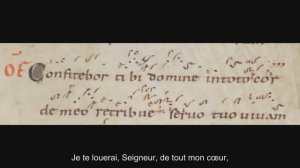 OF Confitebor tibi domine intoto cor
de meo retribue servo tuo vivam
Je te louerai, Seigneur, de tout mon cœur,